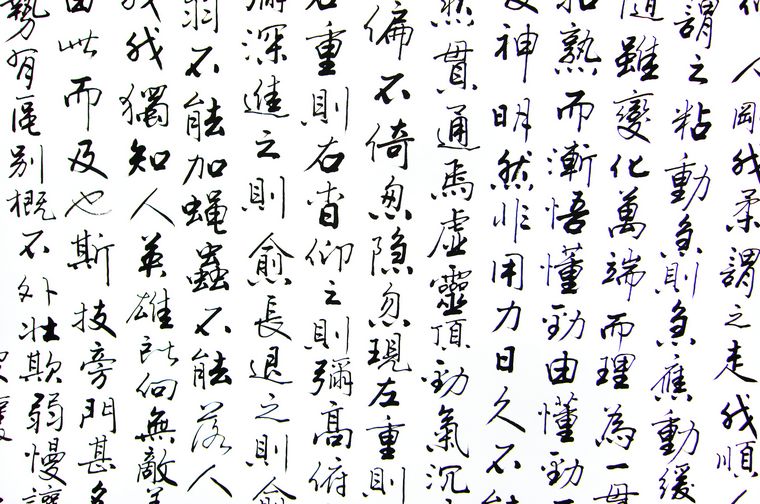 人剛我柔謂之走我順
謂之粘動急則急應動緩
隨雖變化萬端而理為一
熟而漸悟懂勁由懂勁而
神明然非用力日久不能
然貫通焉虛靈頂勁氣沉
偏不倚忽隱忽現左重則
右重則右杳仰之則彌高俯
彌深進之則愈長退之則愈
羽不能加蠅蟲不能落人
我我獨知人英雄所向無敵
由此而及也斯技旁門甚多
勢有區別概不外壯欺弱慢讓